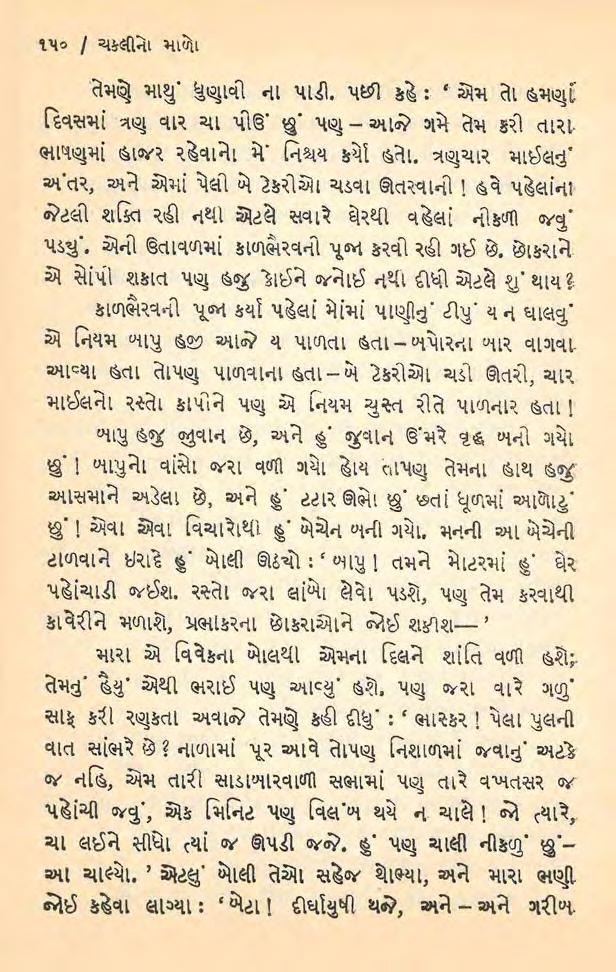 ૧૫૦ / ચકલીનો માળો
તેમણે માથું ધુણાવી ના પાડી. પછી કહે : ‘ એમ તો હમણાં
દિવસમાં ત્રણ વાર ચા પીઉં છું પણ – આજે ગમે તેમ કરી તારા
ભાષણમાં હાજર રહેવાનો મેં નિશ્ચય કર્યો હતો. ત્રણચાર માઈલનું
અંતર, અને એમાં પેલી બે ટેકરીઓ ચડવા ઊતરવાની ! હવે પહેલાંના
જેટલી શક્તિ રહી નથી એટલે સવારે ઘેરથી વહેલાં નીકળી જવું
પડ્યું. એની ઉતાવળમાં કાળભૈરવની પૂજા કરવી રહી ગઈ છે. છોકરાને
એ સોંપી શકાત પણ હજુ કોઈને જનોઈ નથી દીધી એટલે શું થાય ?
કાળભૈરવની પૂજા કર્યા પહેલાં મોંમાં પાણીનું ટીપું ય ન ઘાલવું
એ નિયમ બાપુ હજી આજે ય પાળતા હતા – બપોરના બાર વાગવા
આવ્યા હતા તોપણ પાળવાના હતા – બે ટેકરીઓ ચડી ઊતરી, ચાર
માઈલનો રસ્તો કાપીને પણ એ નિયમ ચુસ્ત રીતે પાળનાર હતા !
બાપુ હજુ જુવાન છે, અને હું જુવાન ઉંમરે વૃદ્ધ બની ગયો
છું ! બાપુનો વાંસો જરા વળી ગયો હોય તોપણ તેમના હાથ હજુ
આસમાને અડેલા છે, અને હું ટટાર ઊભો છું છતાં ધૂળમાં આળોટું
છું ! એવા એવા વિચારોથી હું બેચેન બની ગયો. મનની આ બેચેની
ટાળવાને ઇરાદે હું બોલી ઊઠ્યો : ‘ બાપુ ! તમને મોટરમાં હું ઘેર
પહોંચાડી જઈશ. રસ્તો જરા લાંબો લેવો પડશે, પણ તેમ કરવાથી
કાવેરીને મળાશે, પ્રભાકરના છોકરાઓને જોઈ શકીશ— ’
મારા એ વિવેકના બોલથી એમના દિલને શાંતિ વળી હશે;
તેમનું હૈયું એથી ભરાઈ પણ આવ્યું હશે. પણ જરા વારે ગળું
સાફ કરી રણકતા અવાજે તેમણે કહી દીધું : ‘ ભાસ્કર ! પેલા પુલની
વાત સાંભરે છે ? નાળામાં પૂર આવે તોપણ નિશાળમાં જવાનું અટકે
જ નહિ, એમ તારી સાડાબારવાળી સભામાં પણ તારે વખતસર જ
પહોંચી જવું, એક મિનિટ પણ વિલંબ થયે ન ચાલે ! જો ત્યારે,
ચા લઈને સીધો ત્યાં જ ઊપડી જજે. હું પણ ચાલી નીકળું છું–
આ ચાલ્યો. ’ એટલું બોલી તેઓ સહેજ થોભ્યા, અને મારા ભણી
જોઈ કહેવા લાગ્યા : ‘ બેટા ! દીર્ઘાયુષી થજે, અને – અને ગરીબ